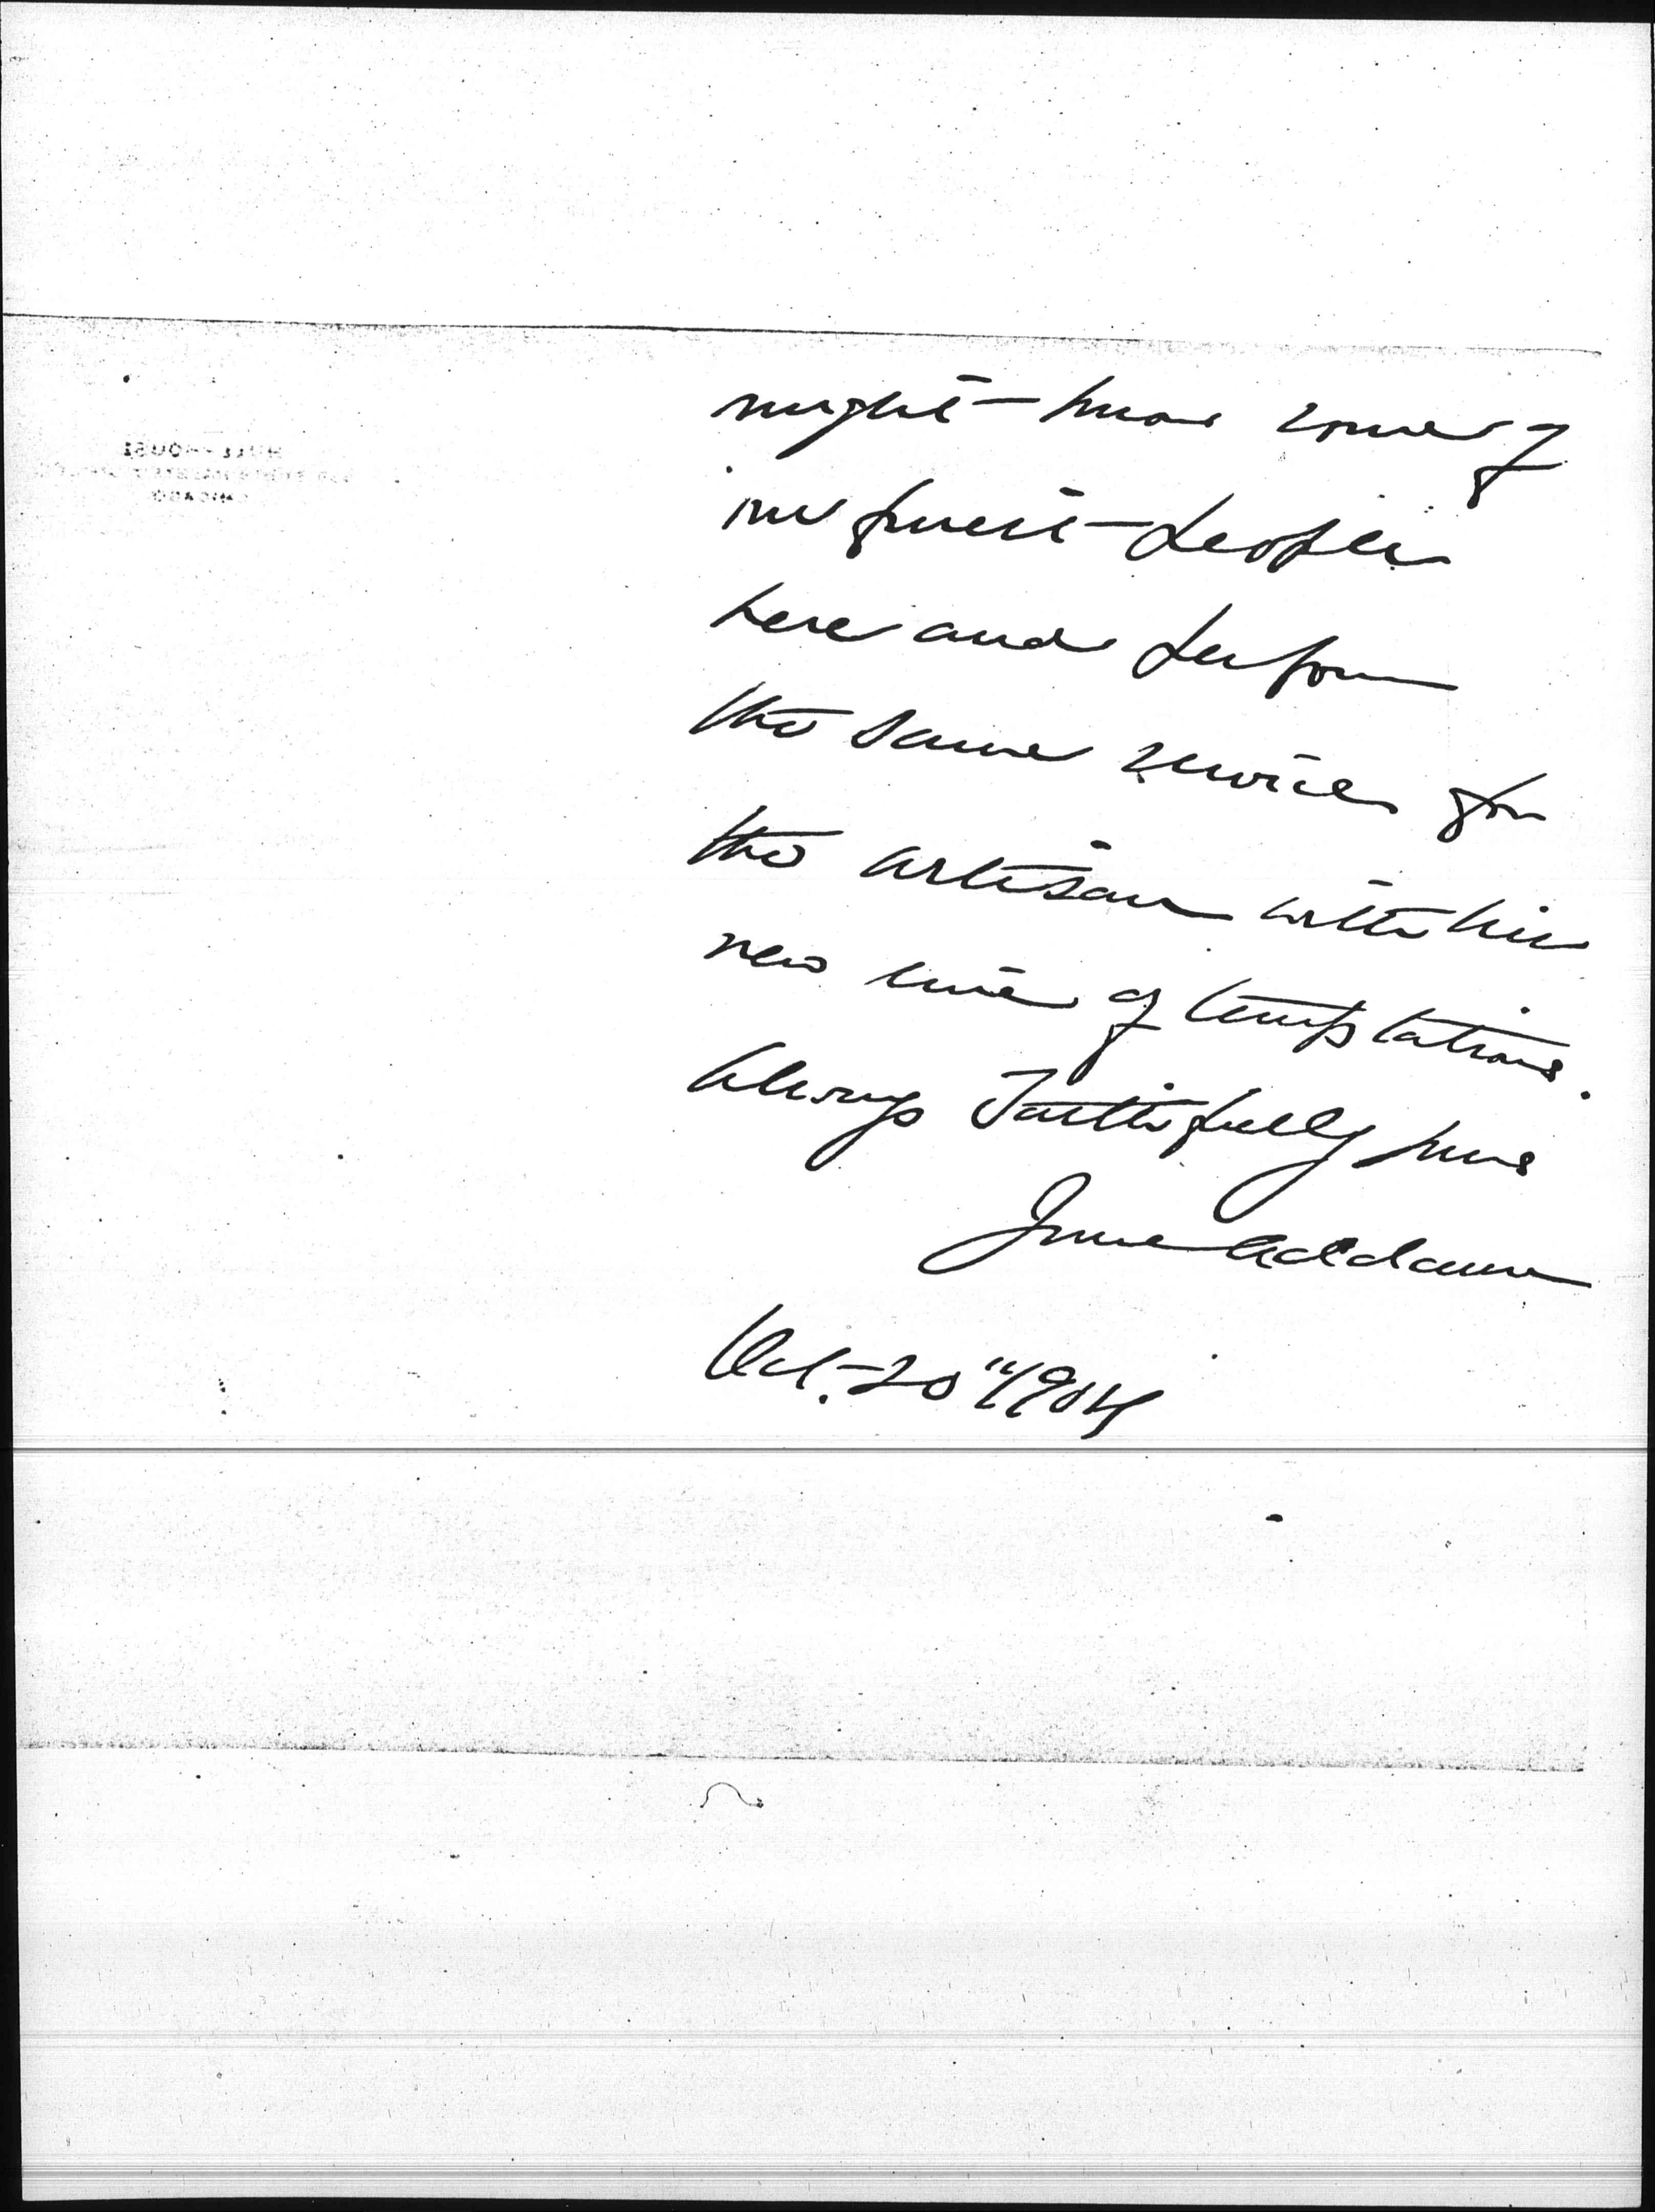 HULL-HOUSE
CHICAGO
might some of
finest people
here and perform
the same service for
the artisan with his
new line of temptations.
Always Faithfully yours
Jane Addams
Oct. 20" 1904